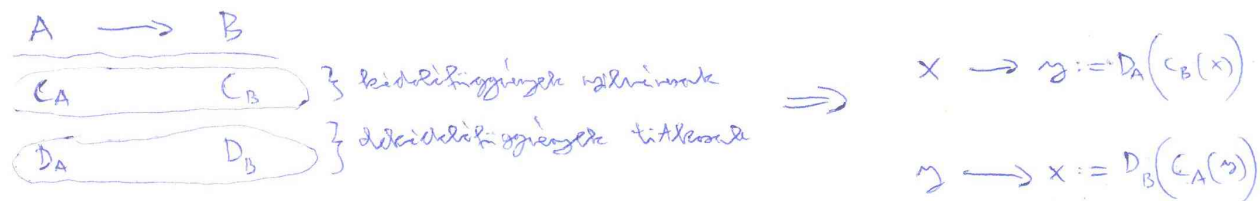 A → B
C_A C_B } kódolófüggvények nyilvánosak
D_A D_B } dekódolófüggvények titkosak
⇒
x → y := D_A(C_B(x))
y → x := D_B(C_A(y))